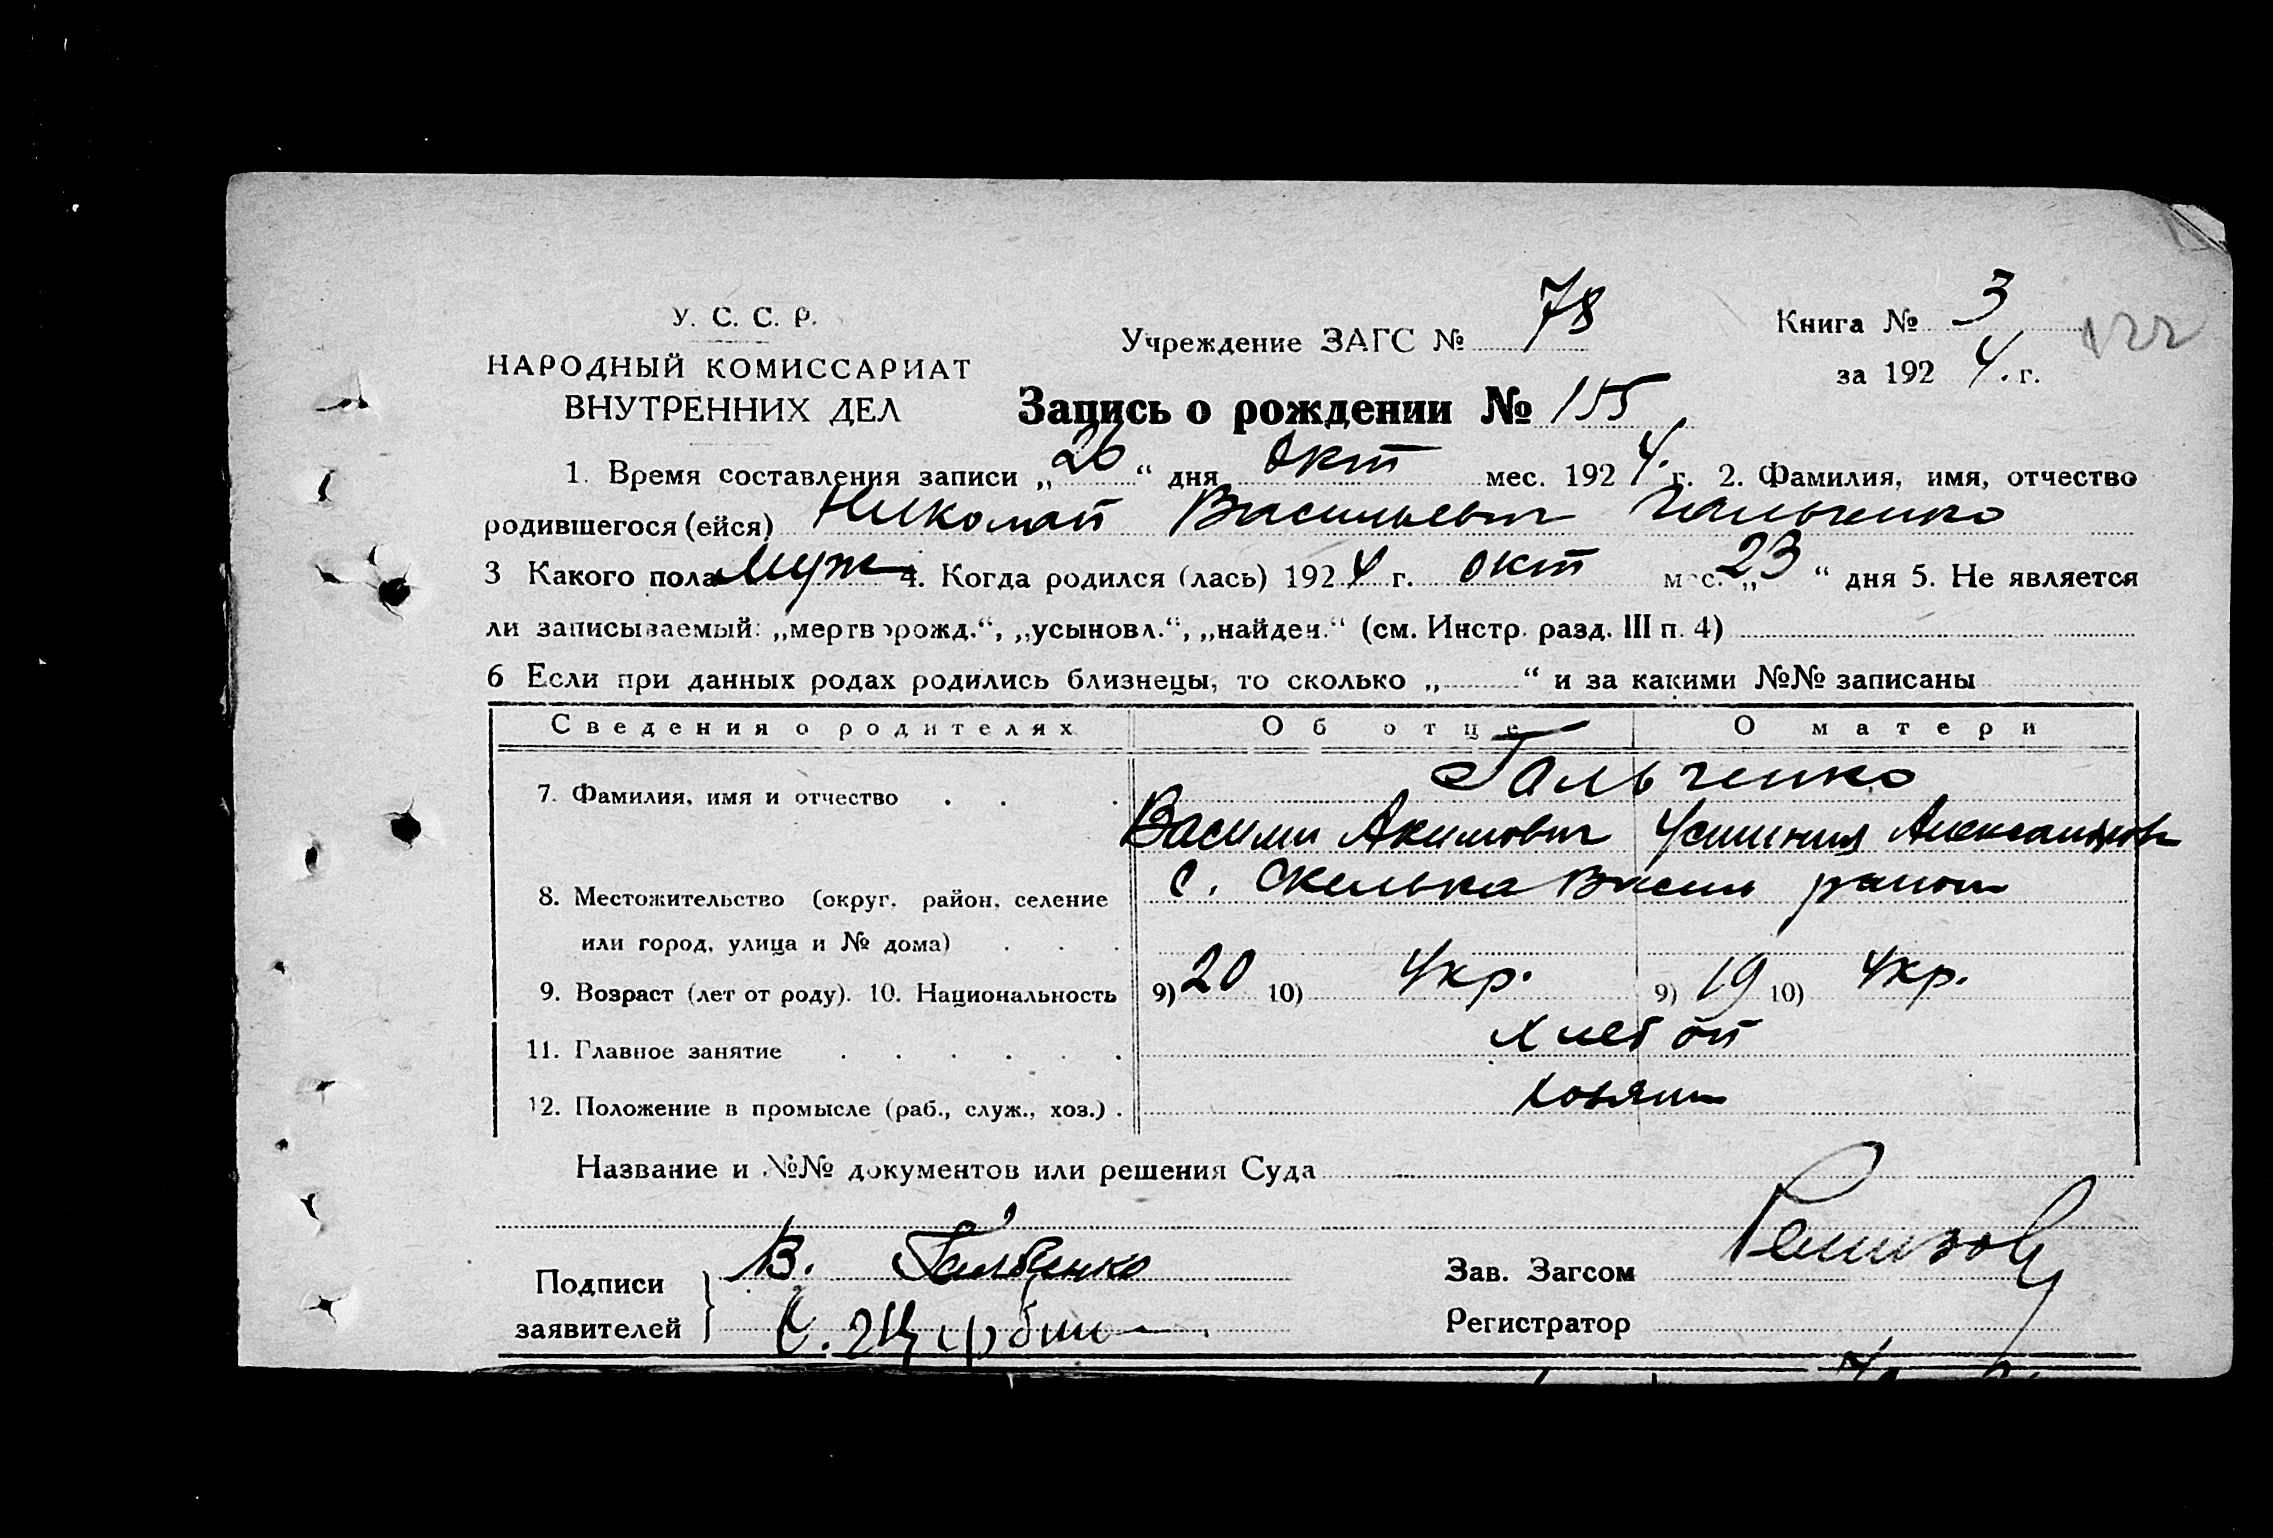 У. С. С. Р.
НАРОДНЫЙ КОМИССАРИАТ
ВНУТРЕННИХ ДЕЛ
Учреждение ЗАГС № 78
Книга № 3
за 1924 г.
122
Запись о рождении № 155
1. Время составления записи „26“ дня окт мес. 1924 г. 2. Фамилия, имя, отчество
родившегося (ейся) Николай Васильевич Гальченко
3 Какого пола муж 4. Когда родился (лась) 1924 г. окт мес. „23“ дня 5. Не является
ли записываемый: „мертворожд.“, „усыновл.“, „найден.“ (см. Инстр. разд. III п. 4)
6 Если при данных родах родились близнецы, то сколько „ “ и за какими №№ записаны
Сведения о родителях Об отце О матери
7. Фамилия, имя и отчество Гальченко
Василий Акимович Устиния Александров
8. Местожительство (округ, район, селение с. Скелька Васил район
или город, улица и № дома)
9. Возраст (лет от роду). 10. Национальность 9) 20 10) Укр. 9) 19 10) Укр.
11. Главное занятие хлебоп
12. Положение в промысле (раб., служ., хоз.) хозяин
Название и №№ документов или решения Суда
Подписи заявителей В. Гальченко
Зав. Загсом Ремизов
Регистратор